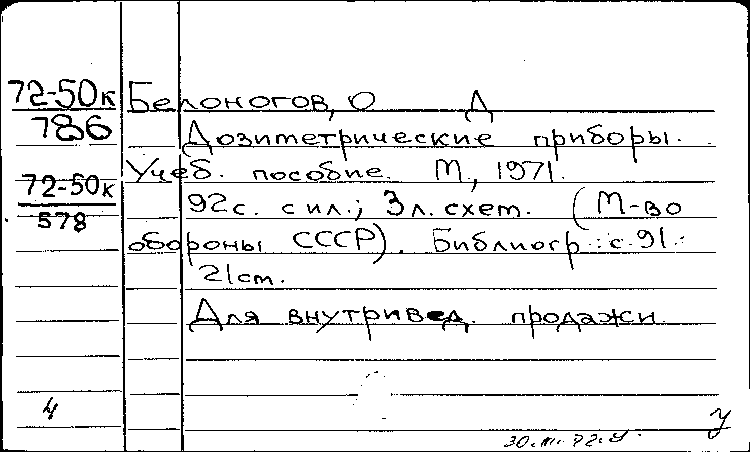 72-50к
786
72-50к
578
Белоногов, О Д
Дозиметрические приборы.
Учеб. пособие. М, 1971.
92с. с ил.; 3 л. схем. (М-во
обороны СССР). Библиогр.: с. 91.
21 см.
Для внутривед. продажи
4
У